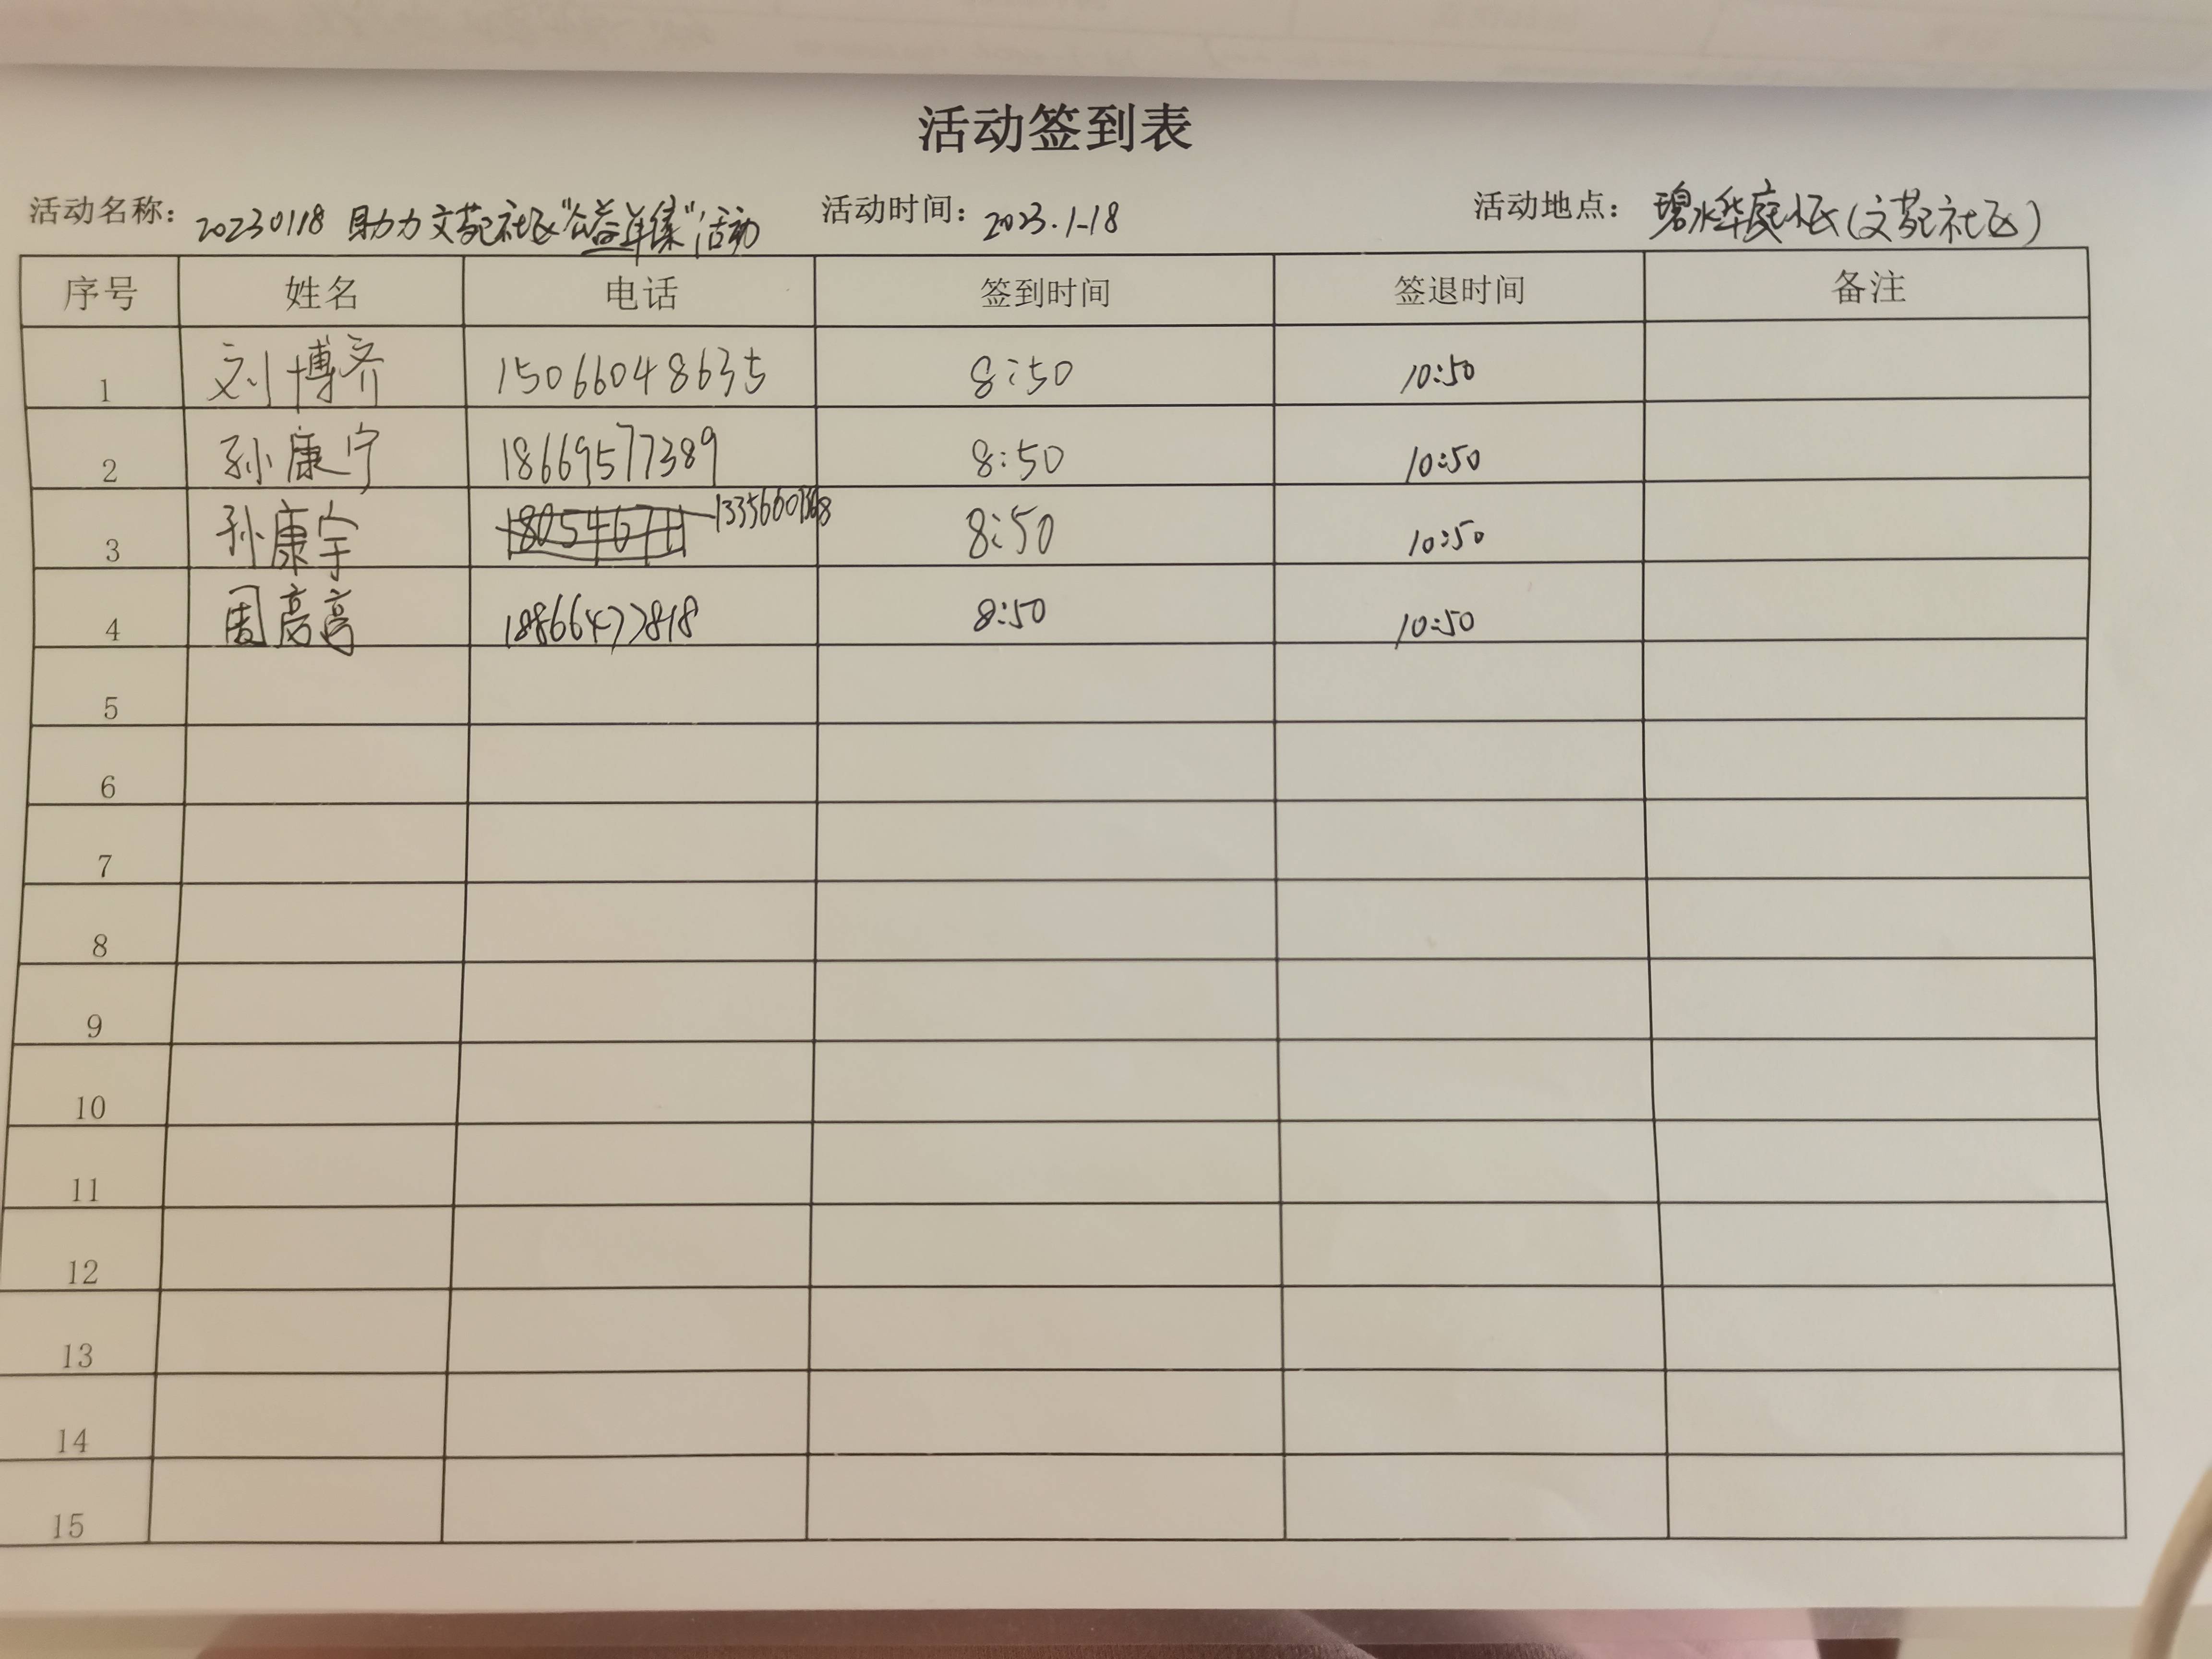 活动签到表
活动名称：20230118 助力文苑社区"公益年集"活动 活动时间：2023.1-18 活动地点：碧水华庭小区(文苑社区)
序号 姓名 电话 签到时间 签退时间 备注
1 刘博齐 15066048635 8:50 10:50
2 孙康宁 18669577389 8:50 10:50
3 孙康宇 8:50 10:50
4 周 18866477818 8:50 10:50
5
6
7
8
9
10
11
12
13
14
15